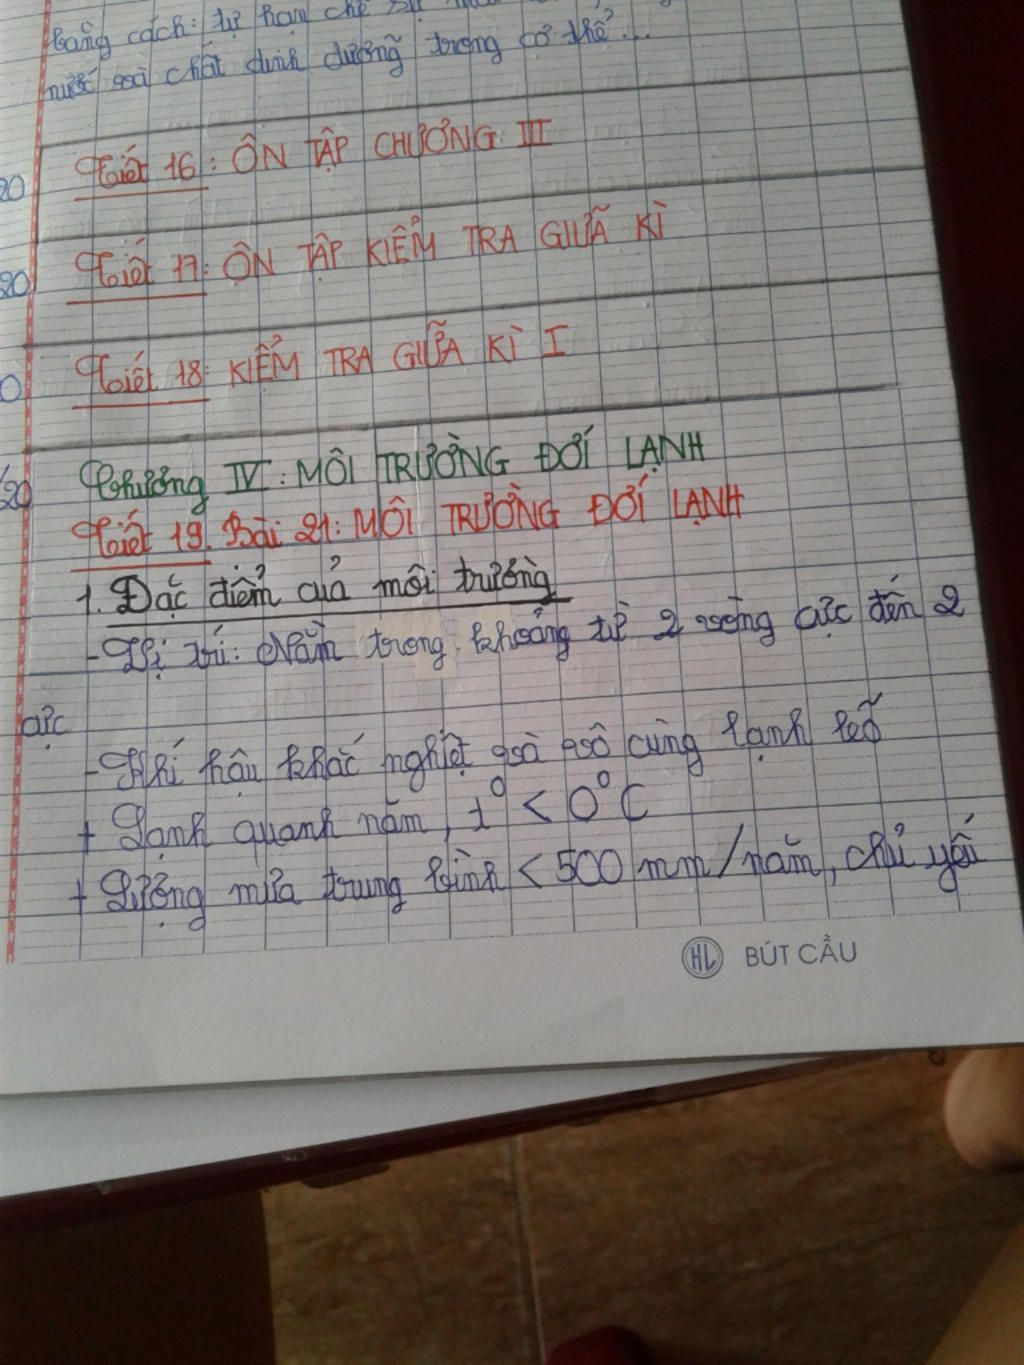 bằng cách: tự hạn chế sự
nước và chất dinh dưỡng trong cơ thể...
20
Tiết 16: ÔN TẬP CHƯƠNG III
20
Tiết 17: ÔN TẬP KIỂM TRA GIỮA KÌ
0
Tiết 18: KIỂM TRA GIỮA KÌ I
/20
Chương IV: MÔI TRƯỜNG ĐỚI LẠNH
Tiết 19. Bài 21: MÔI TRƯỜNG ĐỚI LẠNH
1. Đặc điểm của môi trường
- Vị trí: Nằm trong khoảng từ 2 vòng cực đến 2
cực
- Khí hậu khắc nghiệt và vô cùng lạnh lẽo
+ Lạnh quanh năm, t° < 0°C
+ Lượng mưa trung bình < 500 mm/năm, chủ yếu
HL BÚT CẦU